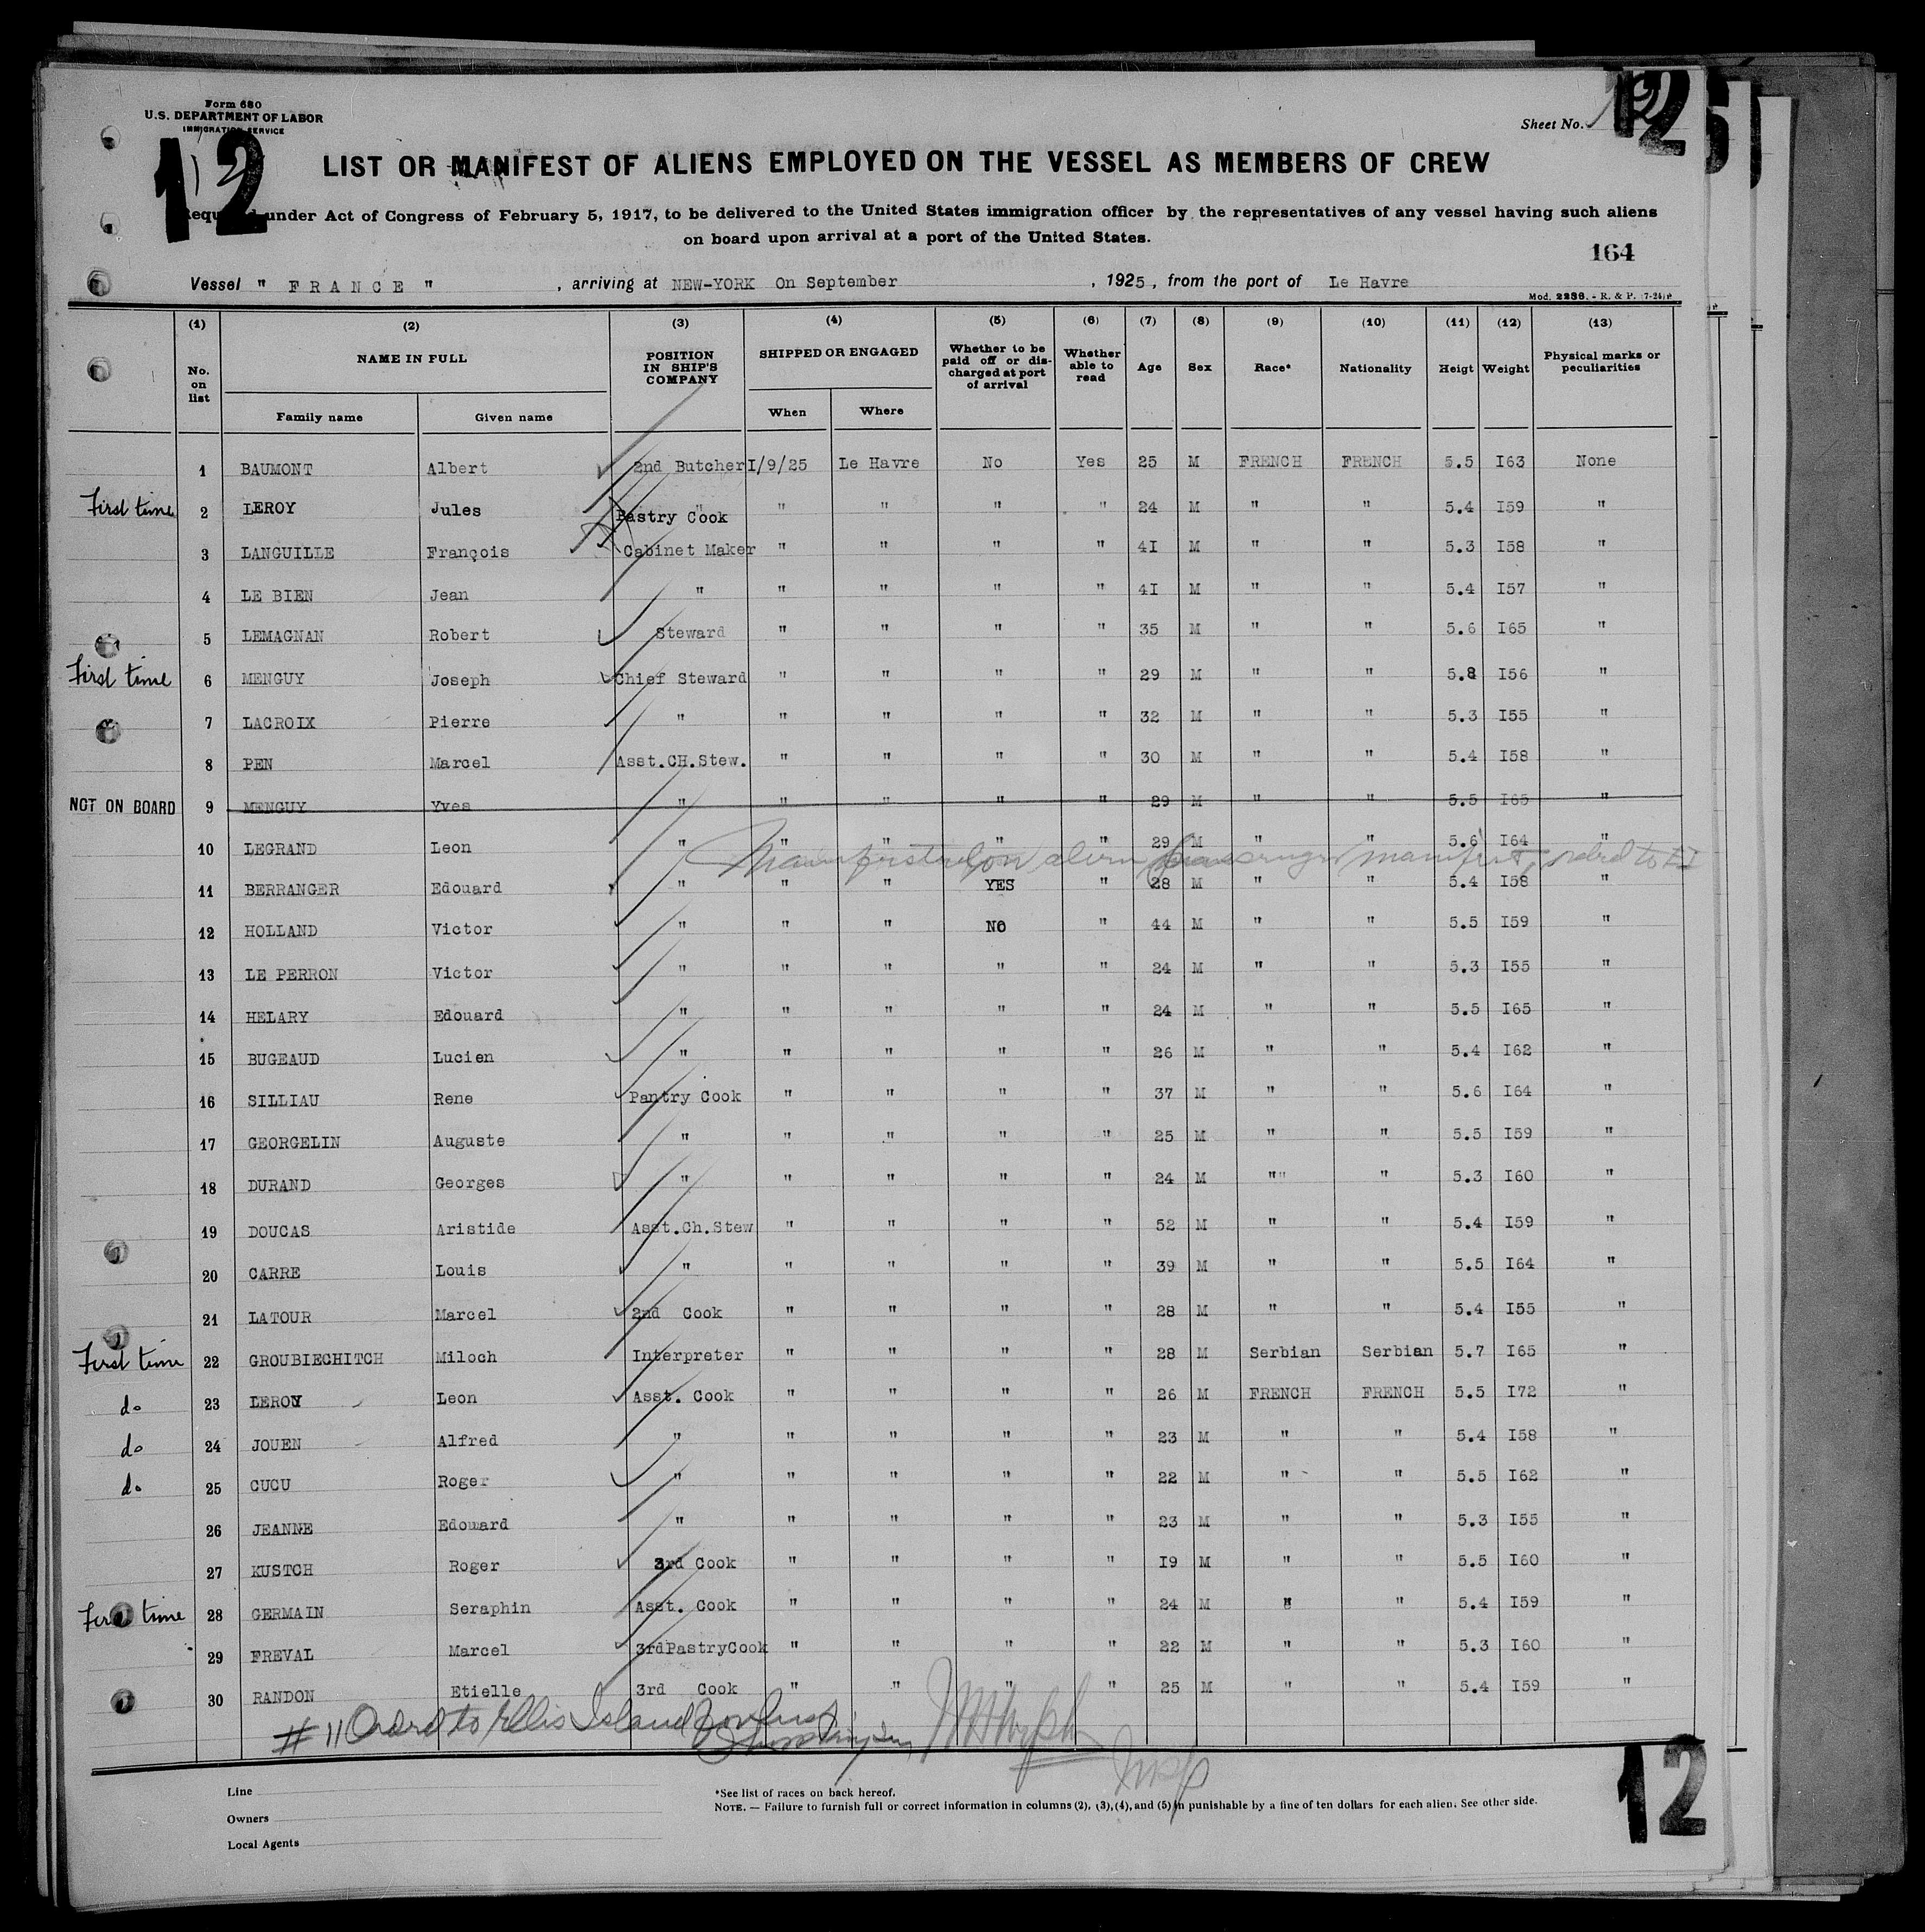 Form 680
U.S. DEPARTMENT OF LABOR
IMMIGRATION SERVICE
Sheet No. 12
12
LIST OR MANIFEST OF ALIENS EMPLOYED ON THE VESSEL AS MEMBERS OF CREW
Required under Act of Congress of February 5, 1917, to be delivered to the United States immigration officer by the representatives of any vessel having such aliens
on board upon arrival at a port of the United States.
164
Vessel " FRANCE ", arriving at NEW-YORK On September, 1925, from the port of Le Havre
Mod. 2236. - R. & P.
(1) (2) (3) (4) (5) (6) (7) (8) (9) (10) (11) (12) (13)
No. on list NAME IN FULL POSITION IN SHIP'S COMPANY SHIPPED OR ENGAGED Whether to be paid off or discharged at port of arrival Whether able to read Age Sex Race* Nationality Heigt Weight Physical marks or peculiarities
Family name Given name When Where
1 BAUMONT Albert 2nd Butcher I/9/25 Le Havre No Yes 25 M FRENCH FRENCH 5.5 I63 None
First time 2 LEROY Jules Pastry Cook " " " " 24 M " " 5.4 I59 "
3 LANGUILLE François Cabinet Maker " " " " 4I M " " 5.3 I58 "
4 LE BIEN Jean " " " " " 4I M " " 5.4 I57 "
5 LEMAGNAN Robert Steward " " " " 35 M " " 5.6 I65 "
First time 6 MENGUY Joseph Chief Steward " " " " 29 M " " 5.8 I56 "
7 LACROIX Pierre " " " " " 32 M " " 5.3 I55 "
8 PEN Marcel Asst.CH.Stew. " " " " 30 M " " 5.4 I58 "
NOT ON BOARD 9 MENGUY Yves " " " " " 29 M " " 5.5 I65 "
10 LEGRAND Leon " " " " " 29 M " " 5.6 I64 "
Manifested on alien passenger manifest, ordrd to EI
11 BERRANGER Edouard " " " YES " 28 M " " 5.4 I58 "
12 HOLLAND Victor " " " NO " 44 M " " 5.5 I59 "
13 LE PERRON Victor " " " " " 24 M " " 5.3 I55 "
14 HELARY Edouard " " " " " 24 M " " 5.5 I65 "
15 BUGEAUD Lucien " " " " " 26 M " " 5.4 I62 "
16 SILLIAU Rene Pantry Cook " " " " 37 M " " 5.6 I64 "
17 GEORGELIN Auguste " " " " " 25 M " " 5.5 I59 "
18 DURAND Georges " " " " " 24 M "" " 5.3 I60 "
19 DOUCAS Aristide Asst.Ch.Stew " " " " 52 M " " 5.4 I59 "
20 CARRE Louis " " " " " 39 M " " 5.5 I64 "
21 LATOUR Marcel 2nd Cook " " " " 28 M " " 5.4 I55 "
First time 22 GROUBIECHITCH Miloch Interpreter " " " " 28 M Serbian Serbian 5.7 I65 "
do 23 LEROY Leon Asst. Cook " " " " 26 M FRENCH FRENCH 5.5 I72 "
do 24 JOUEN Alfred " " " " " 23 M " " 5.4 I58 "
do 25 CUCU Roger " " " " " 22 M " " 5.5 I62 "
26 JEANNE Edouard " " " " " 23 M " " 5.3 I55 "
27 KUSTCH Roger 3rd Cook " " " " I9 M " " 5.5 I60 "
First time 28 GERMAIN Seraphin Asst. Cook " " " " 24 M " " 5.4 I59 "
29 FREVAL Marcel 3rdPastryCook " " " " 22 M " " 5.3 I60 "
30 RANDON Etielle 3rd Cook " " " " 25 M " " 5.4 I59 "
# 11 Ordrd to Ellis Island
Line
Owners
Local Agents
*See list of races on back hereof.
NOTE. — Failure to furnish full or correct information in columns (2), (3), (4), and (5) in punishable by a fine of ten dollars for each alien. See other side.
12